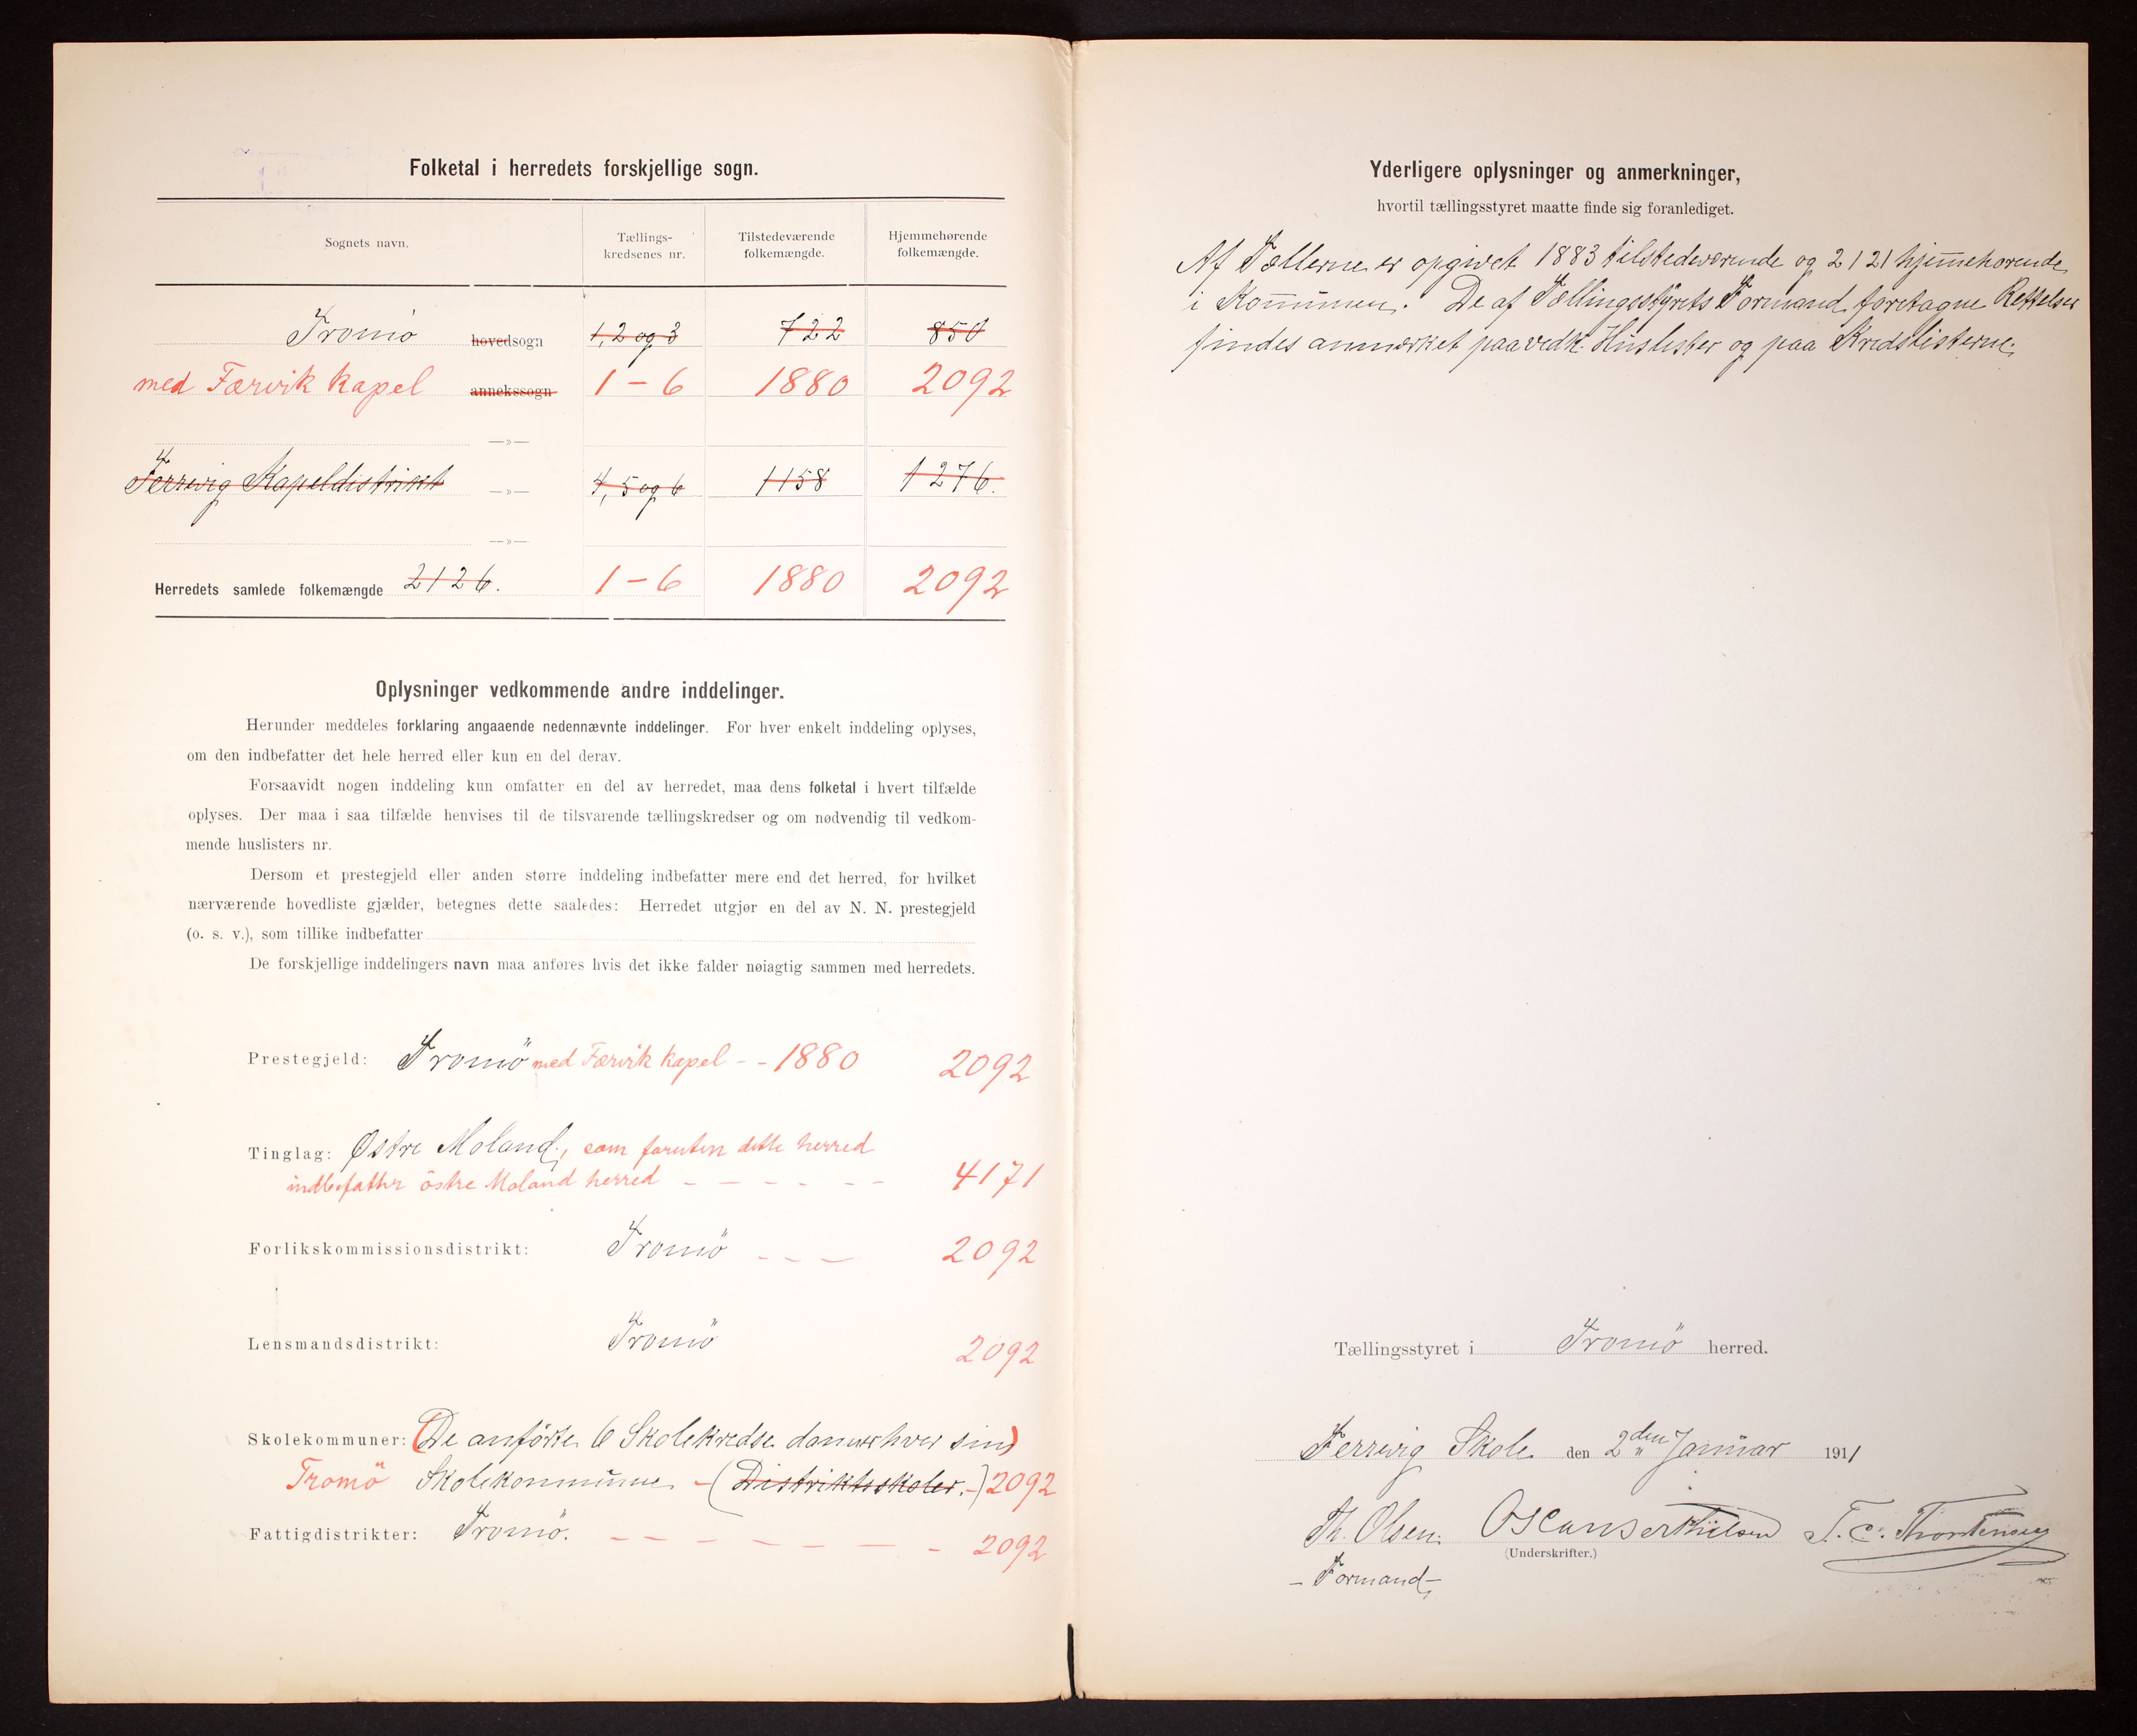 Folketal i herredets forskjellige sogn.
Sognets navn.
Tællings-
kredsenes nr.
Tilstedeværende
folkemængde.
Hjemmehørende
folkemængde.
Tromö hovedsogn 1, 2 og 3 722 850
med Færvik kapel annekssogn 1 - 6 1880 2092
—»—
Ferrevig Kapeldistrikt —»— 4, 5 og 6 1158 1276.
—»—
Herredets samlede folkemængde 2126. 1 - 6 1880 2092
Oplysninger vedkommende andre inddelinger.
Herunder meddeles forklaring angaaende nedennævnte inddelinger. For hver enkelt inddeling oplyses,
om den indbefatter det hele herred eller kun en del derav.
Forsaavidt nogen inddeling kun omfatter en del av herredet, maa dens folketal i hvert tilfælde
oplyses. Der maa i saa tilfælde henvises til de tilsvarende tællingskredser og om nødvendig til vedkom-
mende huslisters nr.
Dersom et prestegjeld eller anden større inddeling indbefatter mere end det herred, for hvilket
nærværende hovedliste gjælder, betegnes dette saaledes: Herredet utgjør en del av N. N. prestegjeld
(o. s. v.), som tillike indbefatter
De forskjellige inddelingers navn maa anføres hvis det ikke falder nøiagtig sammen med herredets.
Prestegjeld: Tromö med Færvik kapel - - 1880 2092
Tinglag: Østre Moland, som foruten dette herred
indbefatter östre Moland herred - - - - - - 4171
Forlikskommissionsdistrikt: Tromö - - - 2092
Lensmandsdistrikt: Tromö 2092
Skolekommuner: (De anförte 6 Skolekredse danner hver sin)
Tromö Skolekommune - (Distriktsskoler.-) 2092
Fattigdistrikter: Tromö. - - - - - - - 2092
Yderligere oplysninger og anmerkninger,
hvortil tællingsstyret maatte finde sig foranlediget.
Af Tællerne er opgivet 1883 tilstedeværende og 2121 hjemmehørende
i Kommunen. De af Tællingsstyrets Formand foretagne Rettelser
findes anmærket paa vedk. Huslister og paa Kredslisterne.
Tællingsstyret i Tromö herred.
Ferrevig Skole den 2den Januar 1911
Th. Olsen. T. C. Thorstensen
(Underskrifter.)
- Formand -